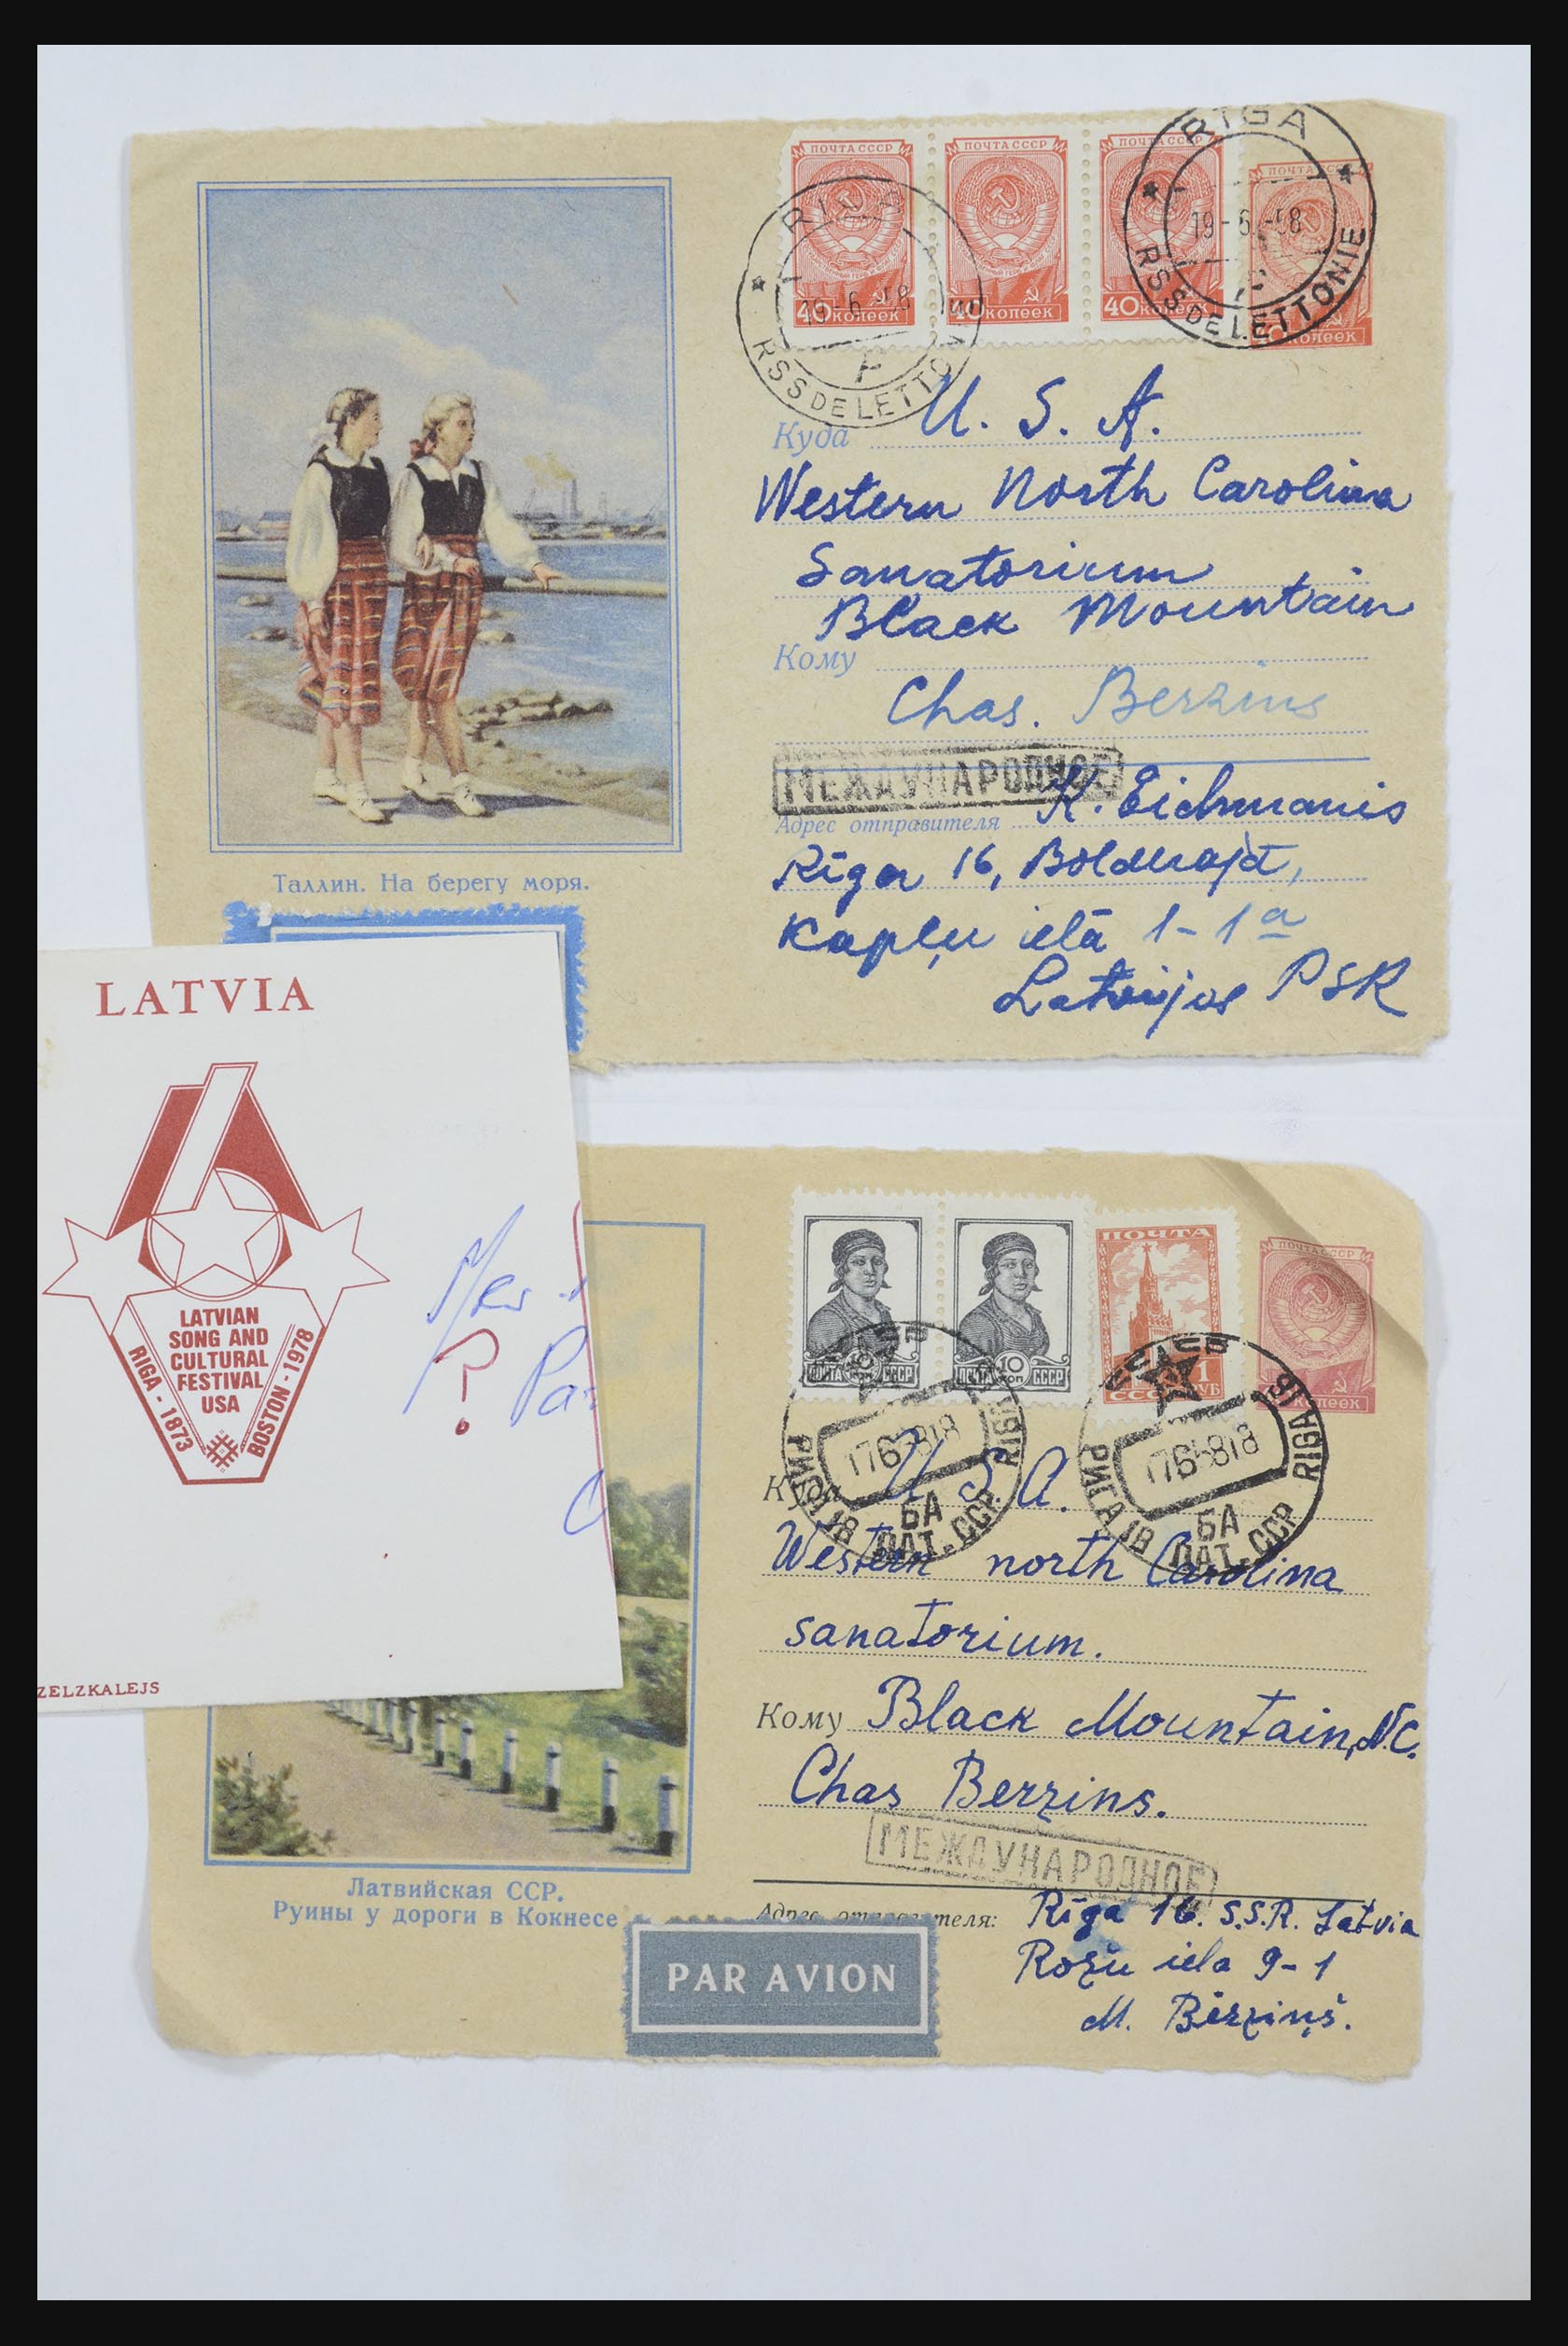 ПОЧТА СССР ПОЧТА СССР ПОЧТА СССР ПОЧТА СССР
40 КОПЕЕК 40 КОПЕЕК 40 КОПЕЕК КОПЕЕК
RIGA
19-6-58
RSS DE LETTO
F
RIGA
19-6-58
RSS DE LETTONIE
Куда U. S. A.
Western North Carolina
Sanatorium
Black Mountain
Кому
Chas. Berzins
МЕЖДУНАРОДНОЕ
Адрес отправителя K. Eichmanis
Rīga 16, Bolderajā,
Kapļu ielā 1-1a
Latvijas PSR
Таллин. На берегу моря.
LATVIA
LATVIAN
SONG AND
CULTURAL
FESTIVAL
USA
RIGA - 1873
BOSTON - 1978
?
ZELZKALEJS
ПОЧТА 10 КОП СССР
ПОЧТА 10 КОП СССР
ПОЧТА
1 РУБ
СССР
ПОЧТА СССР
КОПЕЕК
РИГА
БА
ЛАТ. ССР
RIGA
РИГА
БА
ЛАТ. ССР
RIGA
Куда U. S. A.
Western north Carolina
sanatorium.
Кому Black Mountain, N.C.
Chas Berzins.
МЕЖДУНАРОДНОЕ
Адрес отправителя: Rīga 16. S.S.R. Latvia
Rožu iela 9-1
M. Bērziņš.
Латвийская ССР.
Руины у дороги в Кокнесе
PAR AVION